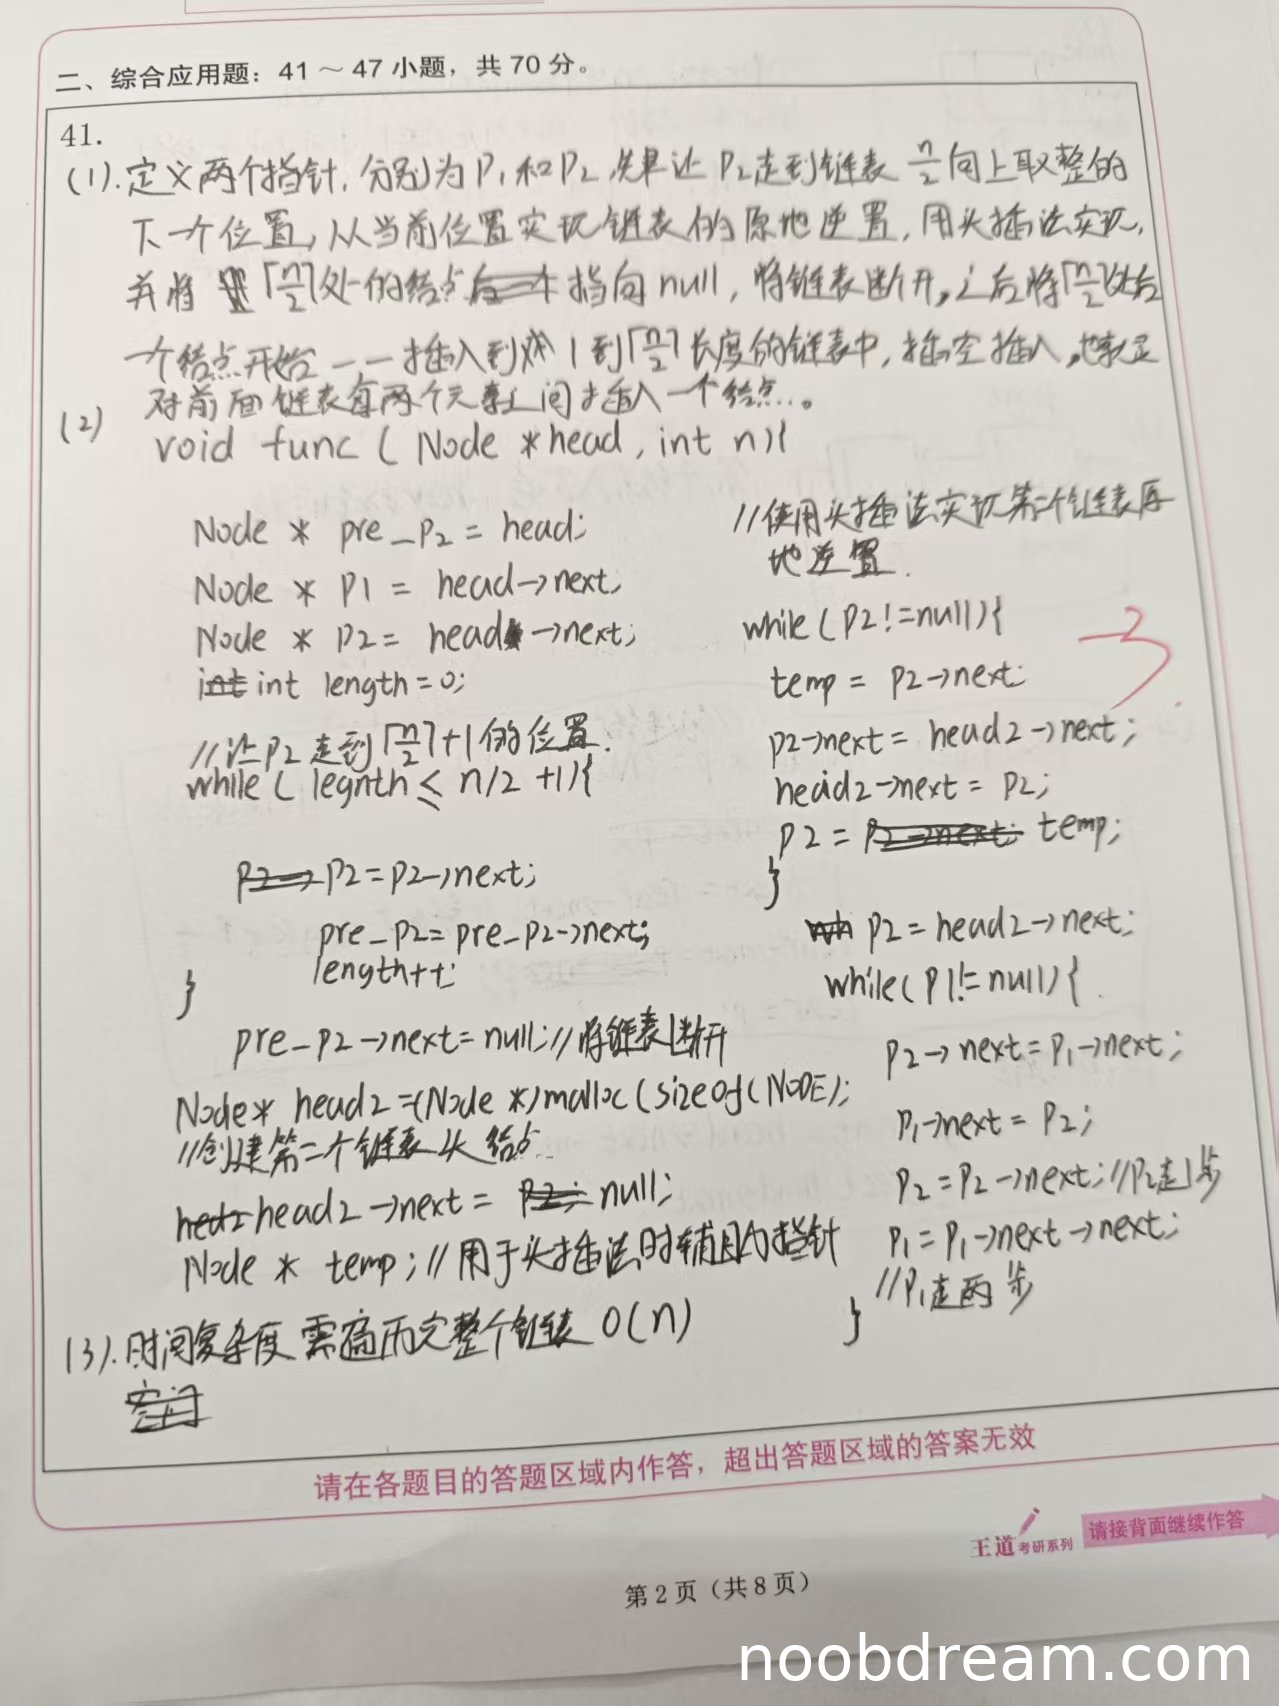 二、综合应用题：41～47小题，共70分。
41.
(1). 定义两个指针，分别为P1和P2，先让P2走到链表 n/2 向上取整的
下一个位置，从当前位置实现链表的原地逆置，用头插法实现，
并将 ⌈n/2⌉处的结点 指向null，将链表断开，之后将⌈n/2⌉处后
一个结点开始一一插入到 1到⌈n/2⌉长度的链表中，插空插入，也就是
对前面链表每两个元素之间插入一个结点...。
(2)
void func ( Node *head, int n){
Node * pre_p2 = head;
Node * p1 = head->next;
Node * p2 = head->next;
int int length=0;
//让P2走到⌈n/2⌉+1的位置.
while ( legnth ≤ n/2 +1){
p2-> p2=p2->next;
pre_p2=pre_p2->next;
length++;
}
pre_p2->next=null;//将链表断开
Node* head2=(Node *)malloc(sizeof(NODE);
//创建第二个链表头结点...
hed2 head2->next = p2; null;
Node * temp; //用于头插法时辅助的指针
//使用头插法实现第二个链表原
地逆置.
while (p2!=null){
temp = p2->next;
p2->next = head2->next;
head2->next = p2;
p2 = p2->next; temp;
}
wh p2 = head2->next;
while(p1!=null){
p2->next=p1->next;
p1->next = p2;
p2=p2->next;//P2走1步
p1=p1->next->next;
//P1走两步
}
3
(3). 时间复杂度 需遍历完整个链表 O(n)
空间
请在各题目的答题区域内作答，超出答题区域的答案无效
王道考研系列
请接背面继续作答
第2页（共8页）
noobdream.com